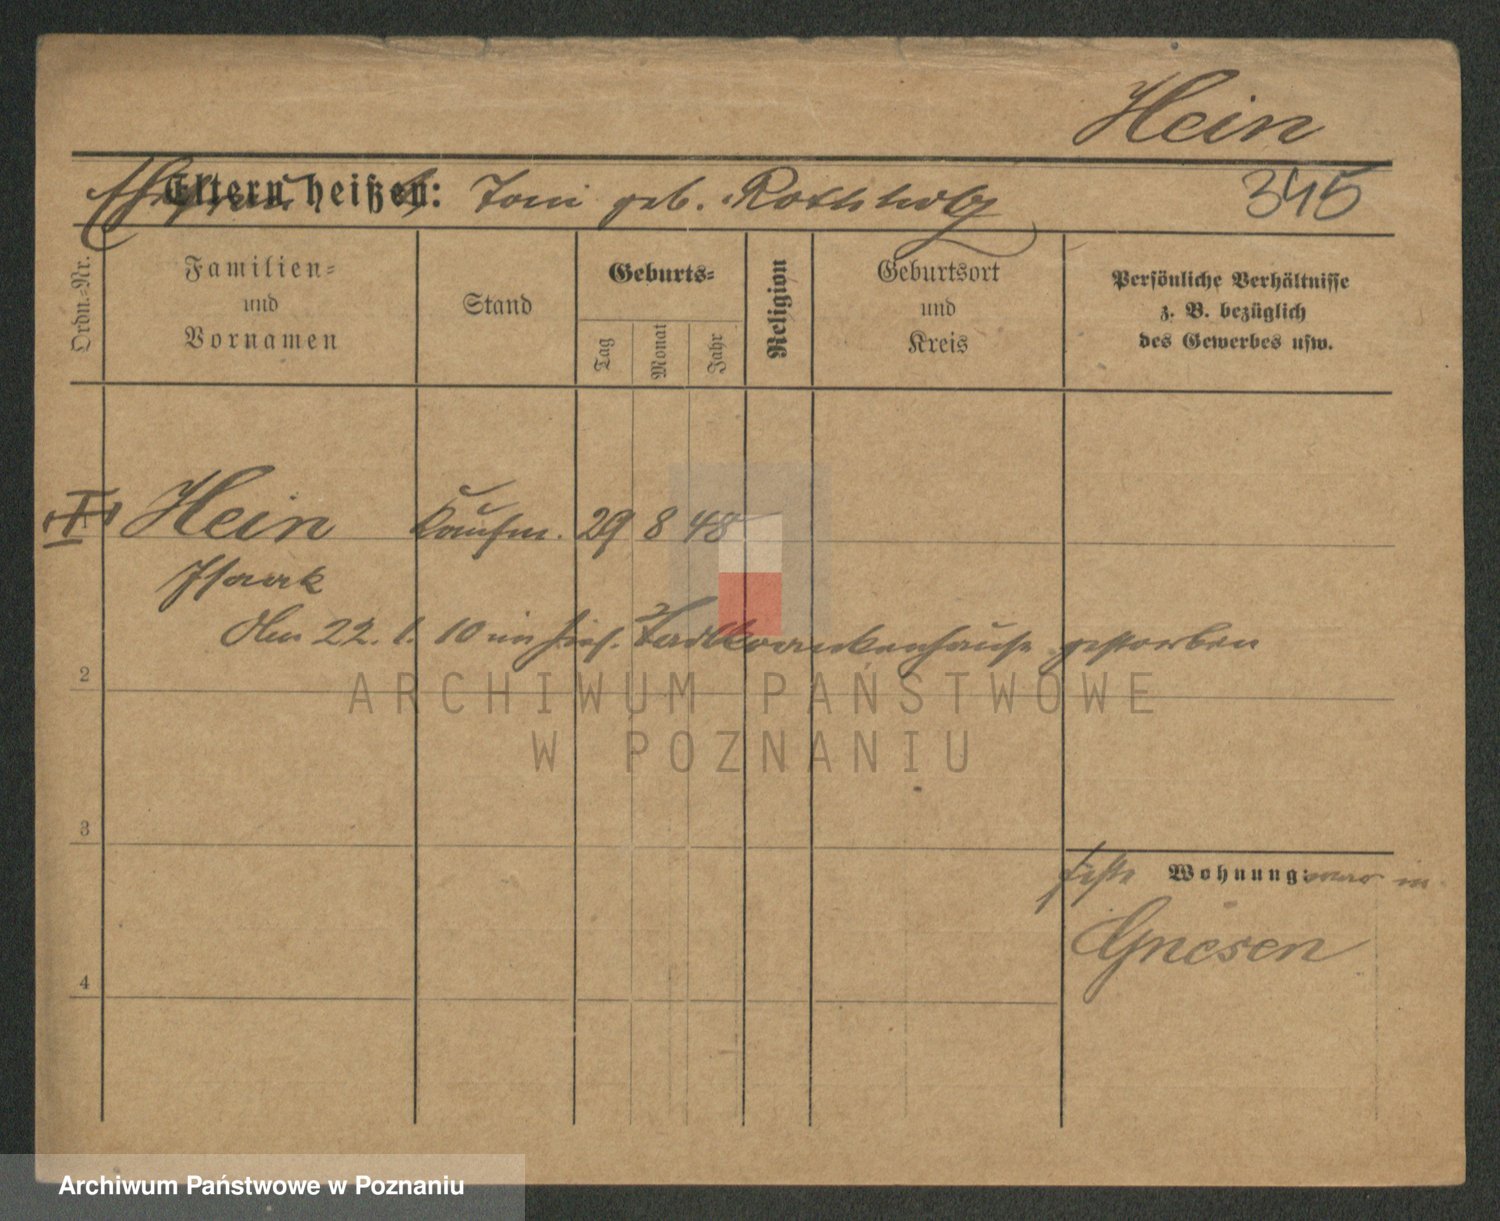 Hein
345
Ehefrau
Eltern heißen: Toni geb. Rothholz
Ordn.-Nr.
Familien-
und
Vornamen
Stand
Geburts-
Tag
Monat
Jahr
Religion
Geburtsort
und
Kreis
Persönliche Verhältnisse
z. B. bezüglich
des Gewerbes usw.
I Hein Kaufm. 29 8 48
Isaak
22. 1. 10 im hies. Stadtkrankenhause gestorben
2
ARCHIWUM PAŃSTWOWE
W POZNANIU
3
Wohnung: war in
Gnesen
4
Archiwum Państwowe w Poznaniu